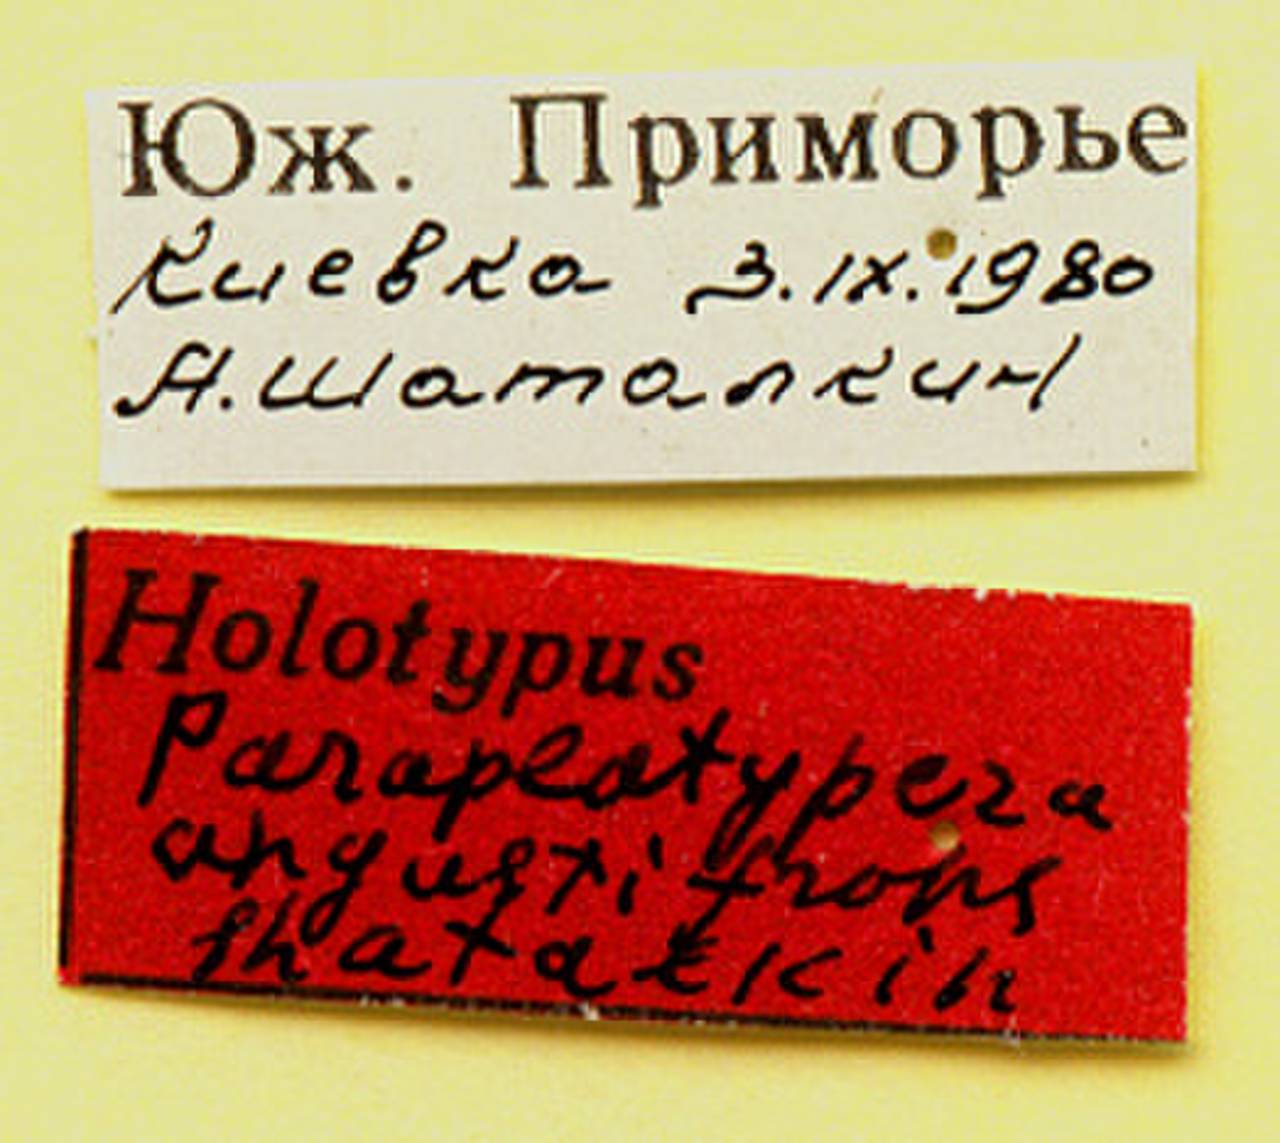 Юж. Приморье
Киевка 3.IX.1980
А.Шаталкин
Holotypus
Paraplatypeza
angustifrons
shatalkin